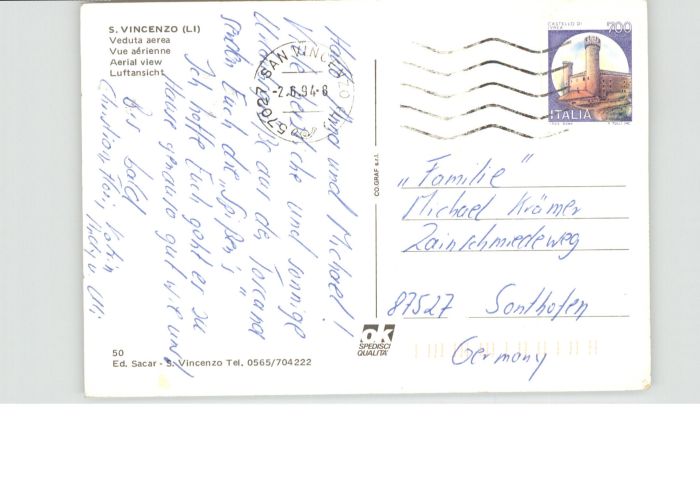 S. VINCENZO (LI)
Veduta aerea
Vue aérienne
Aerial view
Luftansicht
Hallo und Michael!
Viele herzliche und sonnige
aus der Toscana
senden Euch die
Ich hoffe Euch geht es zu
Hause genauso gut wie uns!
Bis bald
Christian,
50
Ed. Sacar - S. Vincenzo Tel. 0565/704222
57027 SAN VINCENZO
-2.6.94-8
CO.GRAF s.r.l.
ok
SPEDISCI
QUALITA'
CASTELLO DI
IVREA
700
ITALIA
„Familie"
Michael Krämer
Zainschmiedeweg
87527 Sonthofen
Germany